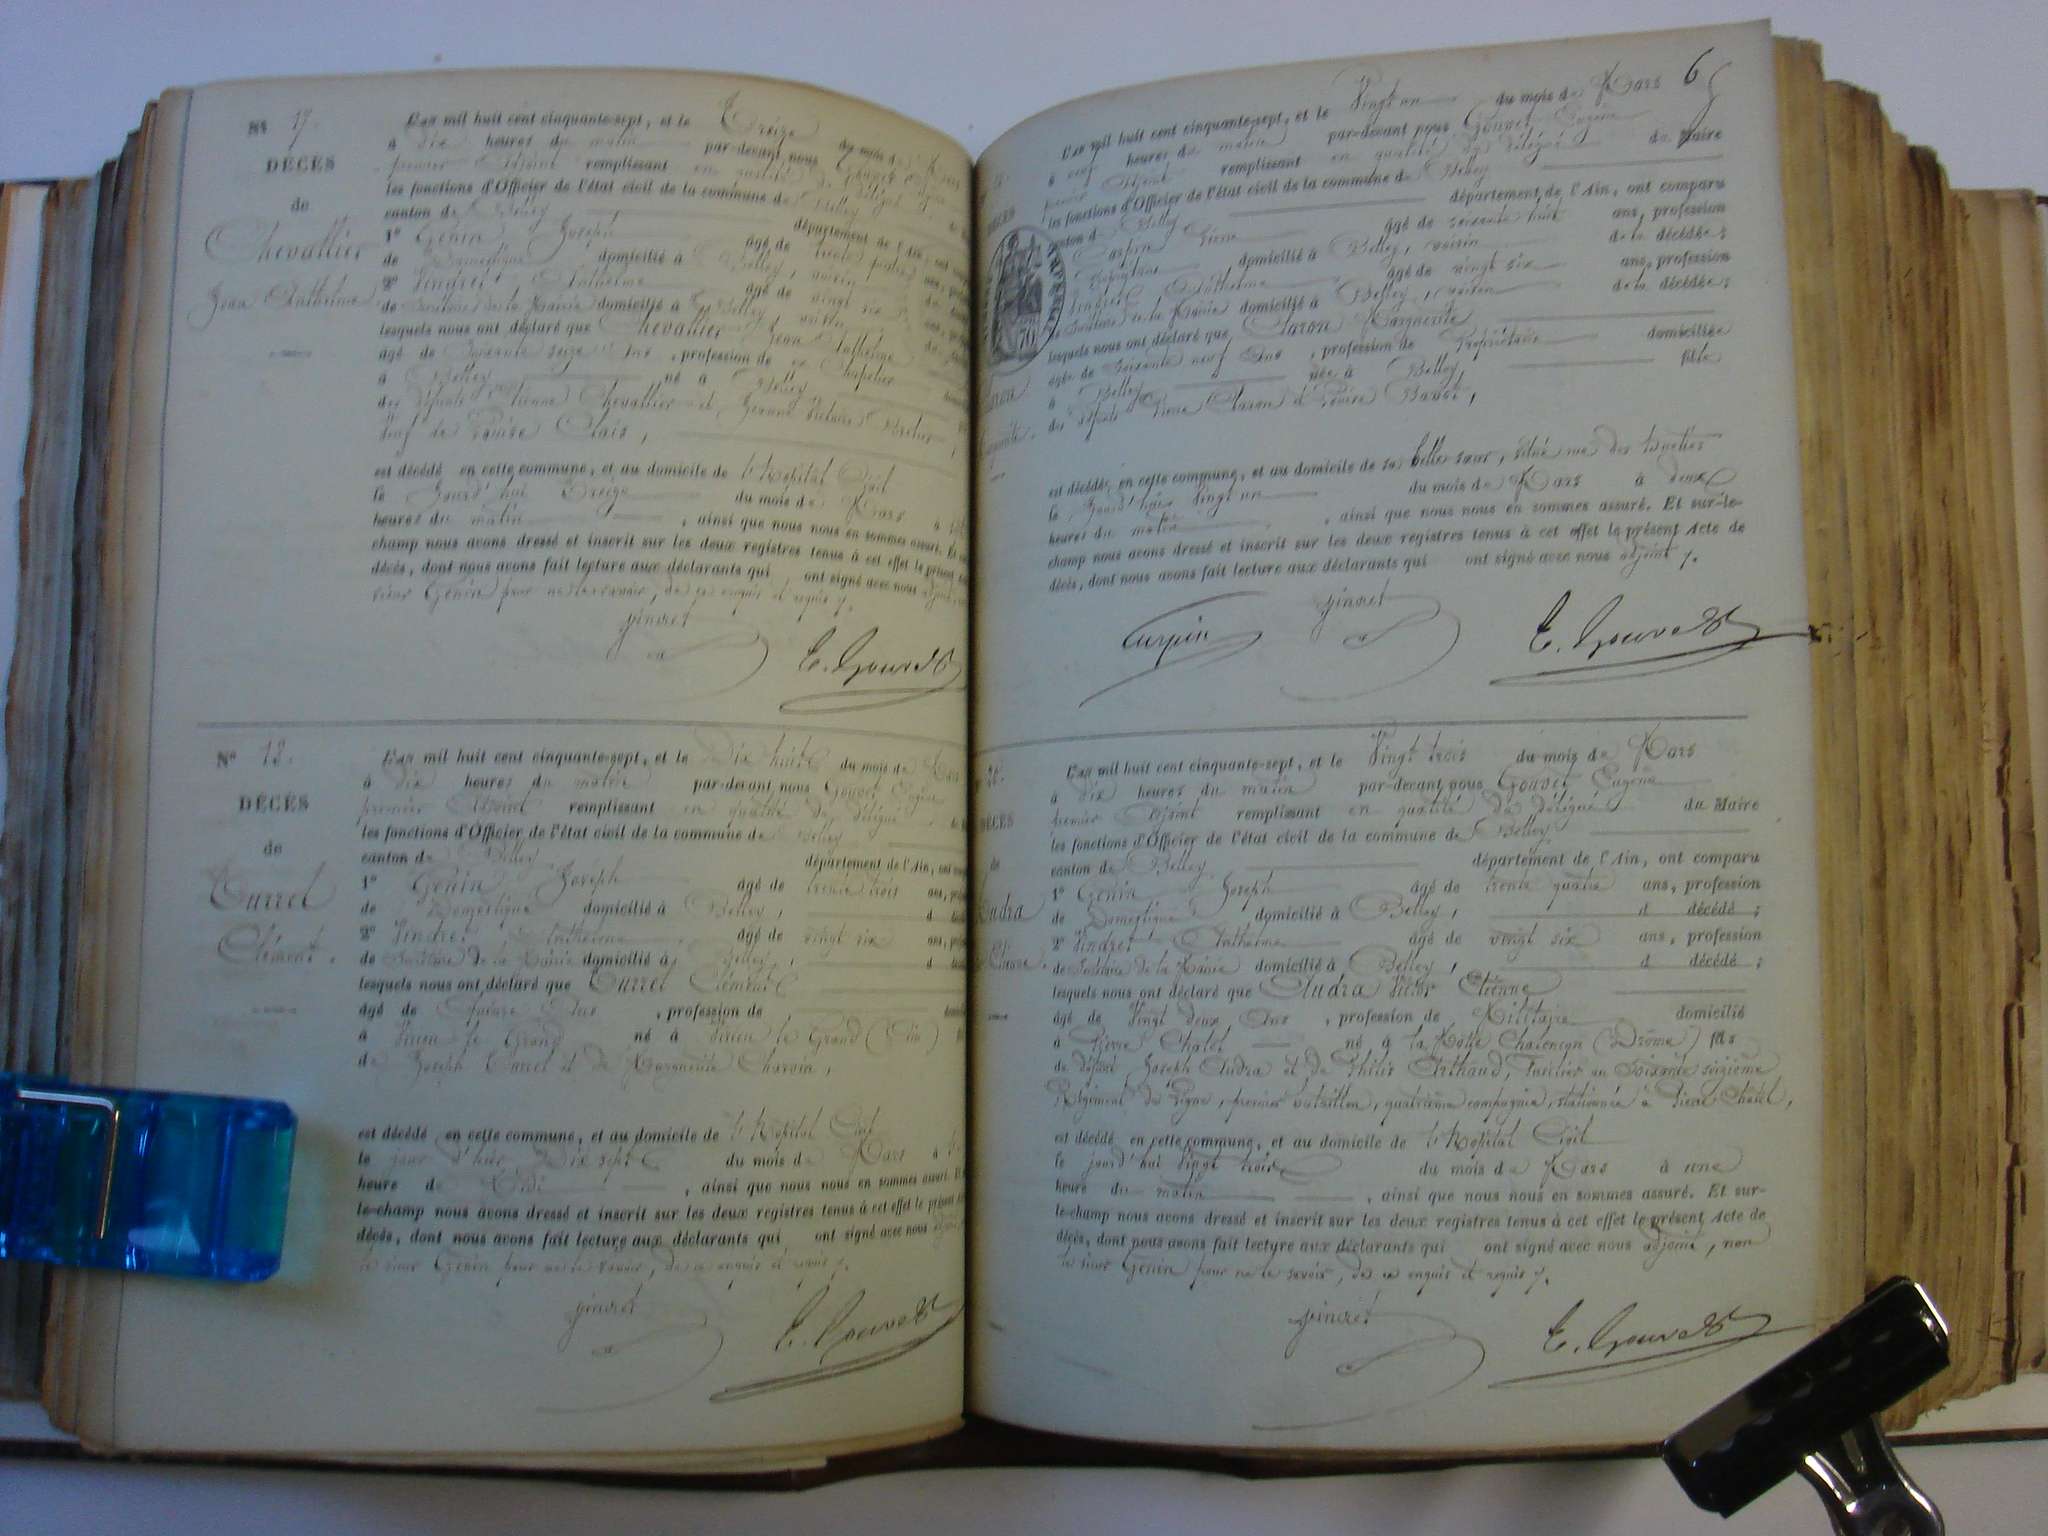 No 17.
DÉCÈS
de
Chevallier
Jean Anthelme
L'an mil huit cent cinquante-sept, et le Treize du mois de Mars
à dix heures du matin par-devant nous Gouvet Eugène
premier Adjoint remplissant en qualité de délégué
les fonctions d'Officier de l'état civil de la commune de Belley
canton de Belley département de l'Ain, ont
1o Genin Joseph âgé de trente
de Domestique domicilié à Belley, voisin
2o Vindret Anthelme âgé de vingt six
de Secrétaire de la Mairie domicilié à Belley, voisin
lesquels nous ont déclaré que Chevallier Jean Anthelme
âgé de Soixante seize Ans, profession de ex Chapelier
à Belley né à Belley
des défunts Etienne Chevallier et Jeanne
Veuf de Louise Clais,
est décédé en cette commune, et au domicile de l'Hopital Civil
le Jourd'hui Treize du mois de Mars à
heures du matin, ainsi que nous nous en sommes assuré. Et
champ nous avons dressé et inscrit sur les deux registres tenus à cet effet le présent
décès, dont nous avons fait lecture aux déclarants qui ont signé avec nous adjoint,
sieur Genin pour ne le savoir, de ce enquis et requis.
Vindret
E. Gouvet
No 18.
DÉCÈS
de
Curret
Clément.
L'an mil huit cent cinquante-sept, et le Dix huit du mois de Mars
à dix heures du matin par-devant nous Gouvet Eugène
premier Adjoint remplissant en qualité de délégué
les fonctions d'Officier de l'état civil de la commune de Belley
canton de Belley département de l'Ain, ont
1o Genin Joseph âgé de trente trois ans,
de Domestique domicilié à Belley,
2o Vindret Anthelme âgé de vingt six ans,
de Secrétaire de la Mairie domicilié à Belley,
lesquels nous ont déclaré que Curret Clément
âgé de Quinze Ans, profession de
à Virieu le Grand né à Virieu le Grand (Ain)
de Joseph Curret et de Marguerite Charvin,
est décédé en cette commune, et au domicile de l'Hopital Civil
le jour d'hier Dix sept du mois de Mars à
heure de Midi, ainsi que nous nous en sommes assuré.
le-champ nous avons dressé et inscrit sur les deux registres tenus à cet effet le présent
décès, dont nous avons fait lecture aux déclarants qui ont signé avec nous
le sieur Genin pour ne le savoir, de ce enquis et requis.
Vindret
E. Gouvet
6
L'an mil huit cent cinquante-sept, et le Vingt un du mois de Mars
à neuf heures du matin par-devant nous Gouvet Eugène
premier Adjoint remplissant en qualité de délégué du Maire
les fonctions d'Officier de l'état civil de la commune de Belley
canton de Belley département de l'Ain, ont comparu
Pierre âgé de soixante huit ans, profession
domicilié à Belley, voisin de la décédée;
Vindret Anthelme âgé de vingt six ans, profession
de Secrétaire de la Mairie domicilié à Belley, voisin de la décédée;
lesquels nous ont déclaré que Claron Marguerite
âgée de Soixante neuf Ans, profession de Propriétaire domiciliée
à Belley née à Belley, fille
des défunts Pierre Claron et Louise
est décédée en cette commune, et au domicile de sa belle sœur, situé rue des
le Jourd'hui Vingt un du mois de Mars à deux
heures du matin, ainsi que nous nous en sommes assuré. Et sur-le-
champ nous avons dressé et inscrit sur les deux registres tenus à cet effet le présent Acte de
décès, dont nous avons fait lecture aux déclarants qui ont signé avec nous adjoint.
Vindret
E. Gouvet
DÉCÈS
de
Audra
L'an mil huit cent cinquante-sept, et le Vingt trois du mois de Mars
à dix heures du matin par-devant nous Gouvet Eugène
premier Adjoint remplissant en qualité de délégué du Maire
les fonctions d'Officier de l'état civil de la commune de Belley
canton de Belley département de l'Ain, ont comparu
1o Genin Joseph âgé de trente quatre ans, profession
de Domestique domicilié à Belley, d décédé;
2o Vindret Anthelme âgé de vingt six ans, profession
de Secrétaire de la Mairie domicilié à Belley, d décédé;
lesquels nous ont déclaré que Audra Victor Etienne
âgé de Vingt deux Ans, profession de Militaire domicilié
à Pierre Chatel né à la Motte Chalencon (Drôme) fils
de défunt Joseph Audra et de Philis Arthaud, fusilier au Soixante seizième
Régiment de Ligne, premier bataillon, quatrième compagnie, stationnée à Pierre Chatel,
est décédé en cette commune, et au domicile de l'Hopital Civil
le jourd'hui Vingt trois du mois de Mars à une
heure du matin, ainsi que nous nous en sommes assuré. Et sur-
le-champ nous avons dressé et inscrit sur les deux registres tenus à cet effet le présent Acte de
décès, dont nous avons fait lecture aux déclarants qui ont signé avec nous adjoint, non
le sieur Genin pour ne le savoir, de ce enquis et requis.
Vindret
E. Gouvet